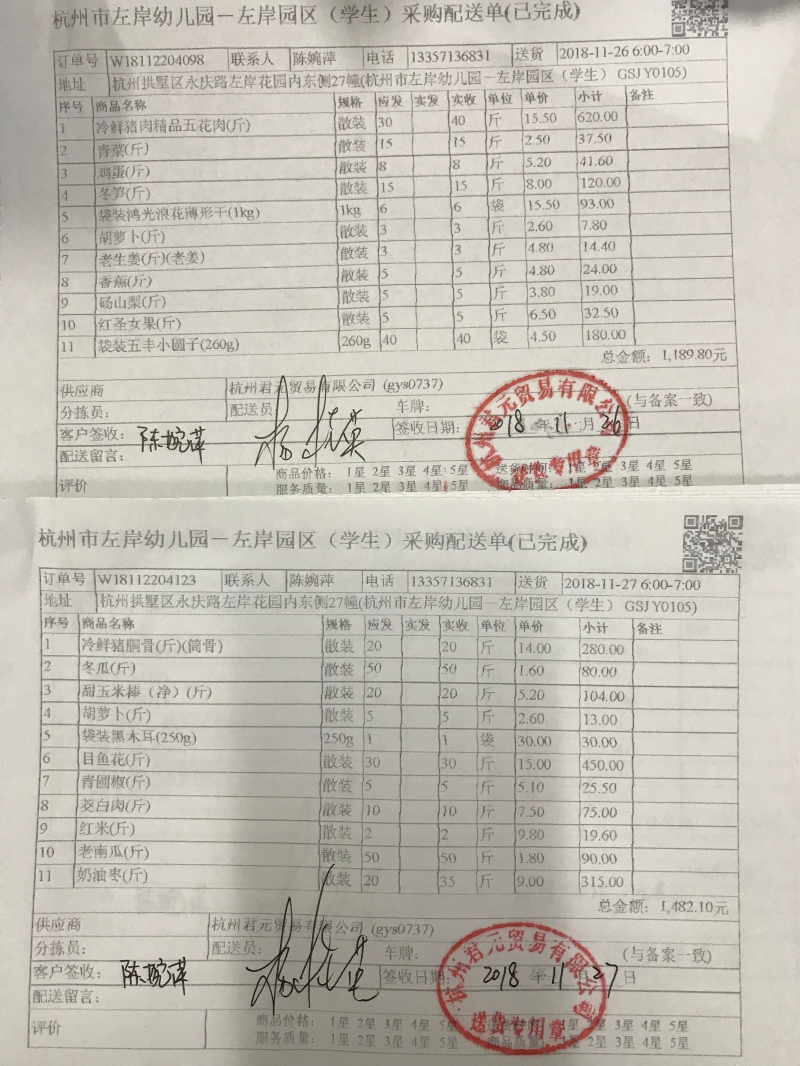 杭州市左岸幼儿园－左岸园区（学生）采购配送单(已完成)
订单号 W18112204098 联系人 陈婉萍 电话 13357136831 送货 2018-11-26 6:00-7:00
地址 杭州拱墅区永庆路左岸花园内东侧27幢(杭州市左岸幼儿园－左岸园区（学生）GSJY0105)
序号 商品名称 规格 应发 实发 实收 单位 单价 小计 备注
1 冷鲜猪肉精品五花肉(斤) 散装 30 40 斤 15.50 620.00
2 青菜(斤) 散装 15 15 斤 2.50 37.50
3 鸡蛋(斤) 散装 8 8 斤 5.20 41.60
4 冬笋(斤) 散装 15 15 斤 8.00 120.00
5 袋装鸿光浪花薄形干(1kg) 1kg 6 6 袋 15.50 93.00
6 胡萝卜(斤) 散装 3 3 斤 2.60 7.80
7 老生姜(斤)(老姜) 散装 3 3 斤 4.80 14.40
8 香蕉(斤) 散装 5 5 斤 4.80 24.00
9 砀山梨(斤) 散装 5 5 斤 3.80 19.00
10 红圣女果(斤) 散装 5 5 斤 6.50 32.50
11 袋装五丰小圆子(260g) 260g 40 40 袋 4.50 180.00
总金额：1,189.80元
供应商 杭州君元贸易有限公司 (gys0737)
分拣员： 配送员 车牌： (与备案一致)
客户签收：陈婉萍 签收日期： 2018 年 11 月 26 日
配送留言：
杭州君元贸易有限公司
送货专用章
评价 商品价格： 1星 2星 3星 4星 5星 送货时间： 1星 2星 3星 4星 5星
服务质量： 1星 2星 3星 4星 5星 商品质量： 1星 2星 3星 4星 5星
杭州市左岸幼儿园－左岸园区（学生）采购配送单(已完成)
订单号 W18112204123 联系人 陈婉萍 电话 13357136831 送货 2018-11-27 6:00-7:00
地址 杭州拱墅区永庆路左岸花园内东侧27幢(杭州市左岸幼儿园－左岸园区（学生）GSJY0105)
序号 商品名称 规格 应发 实发 实收 单位 单价 小计 备注
1 冷鲜猪胴骨(斤)(筒骨) 散装 20 20 斤 14.00 280.00
2 冬瓜(斤) 散装 50 50 斤 1.60 80.00
3 甜玉米棒（净）(斤) 散装 20 20 斤 5.20 104.00
4 胡萝卜(斤) 散装 5 5 斤 2.60 13.00
5 袋装黑木耳(250g) 250g 1 1 袋 30.00 30.00
6 目鱼花(斤) 散装 30 30 斤 15.00 450.00
7 青圆椒(斤) 散装 5 5 斤 5.10 25.50
8 茭白肉(斤) 散装 10 10 斤 7.50 75.00
9 红米(斤) 散装 2 2 斤 9.80 19.60
10 老南瓜(斤) 散装 50 50 斤 1.80 90.00
11 奶油枣(斤) 散装 20 35 斤 9.00 315.00
总金额：1,482.10元
供应商 杭州君元贸易有限公司 (gys0737)
分拣员： 配送员： 车牌： (与备案一致)
客户签收： 陈婉萍 签收日期 2018 年 11 月 27 日
配送留言：
杭州君元贸易有限公司
送货专用章
评价 商品价格： 1星 2星 3星 4星 5星 1星 2星 3星 4星 5星
服务质量： 1星 2星 3星 4星 5星 商品质量： 1星 2星 3星 4星 5星